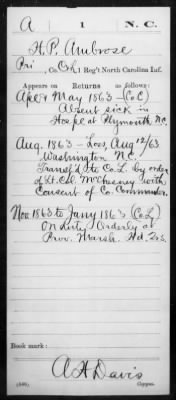 A 1 N.C.
H. P. Ambrose
Pri , Co. , 1 Reg't North Carolina Inf.
Appears on
Returns as follows:
Apl & May 1863 (Co C)
Absent sick in
Hospl at Plymouth NC.
Aug. 1863 - Loss, Aug 12/63
Washington N.C.
Transf'd to Co. L. by order
of Lt. Col. McChesney with
Consent of Co. Commander.
Nov 1863 to Jany 1863 (Co L)
On duty Orderly at
Prov. Marsh. Hd. Qrs.
Book mark:
A H Davis
Copyist.